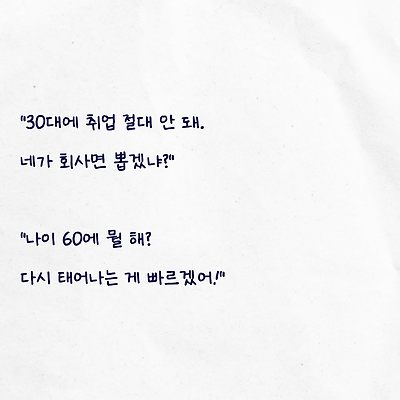 "30대에 취업 절대 안 돼.
네가 회사면 뽑겠냐?"
"나이 60에 뭘 해?
다시 태어나는 게 빠르겠어!"